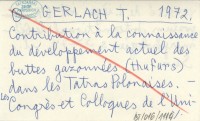 GERLACH T. 1972.
Contribution à la connaissance
du développement actuel des
buttes gazonnées (thufurs)
dans les Tatras Polonaises. -
Congrès et Colloques de l'Uni-